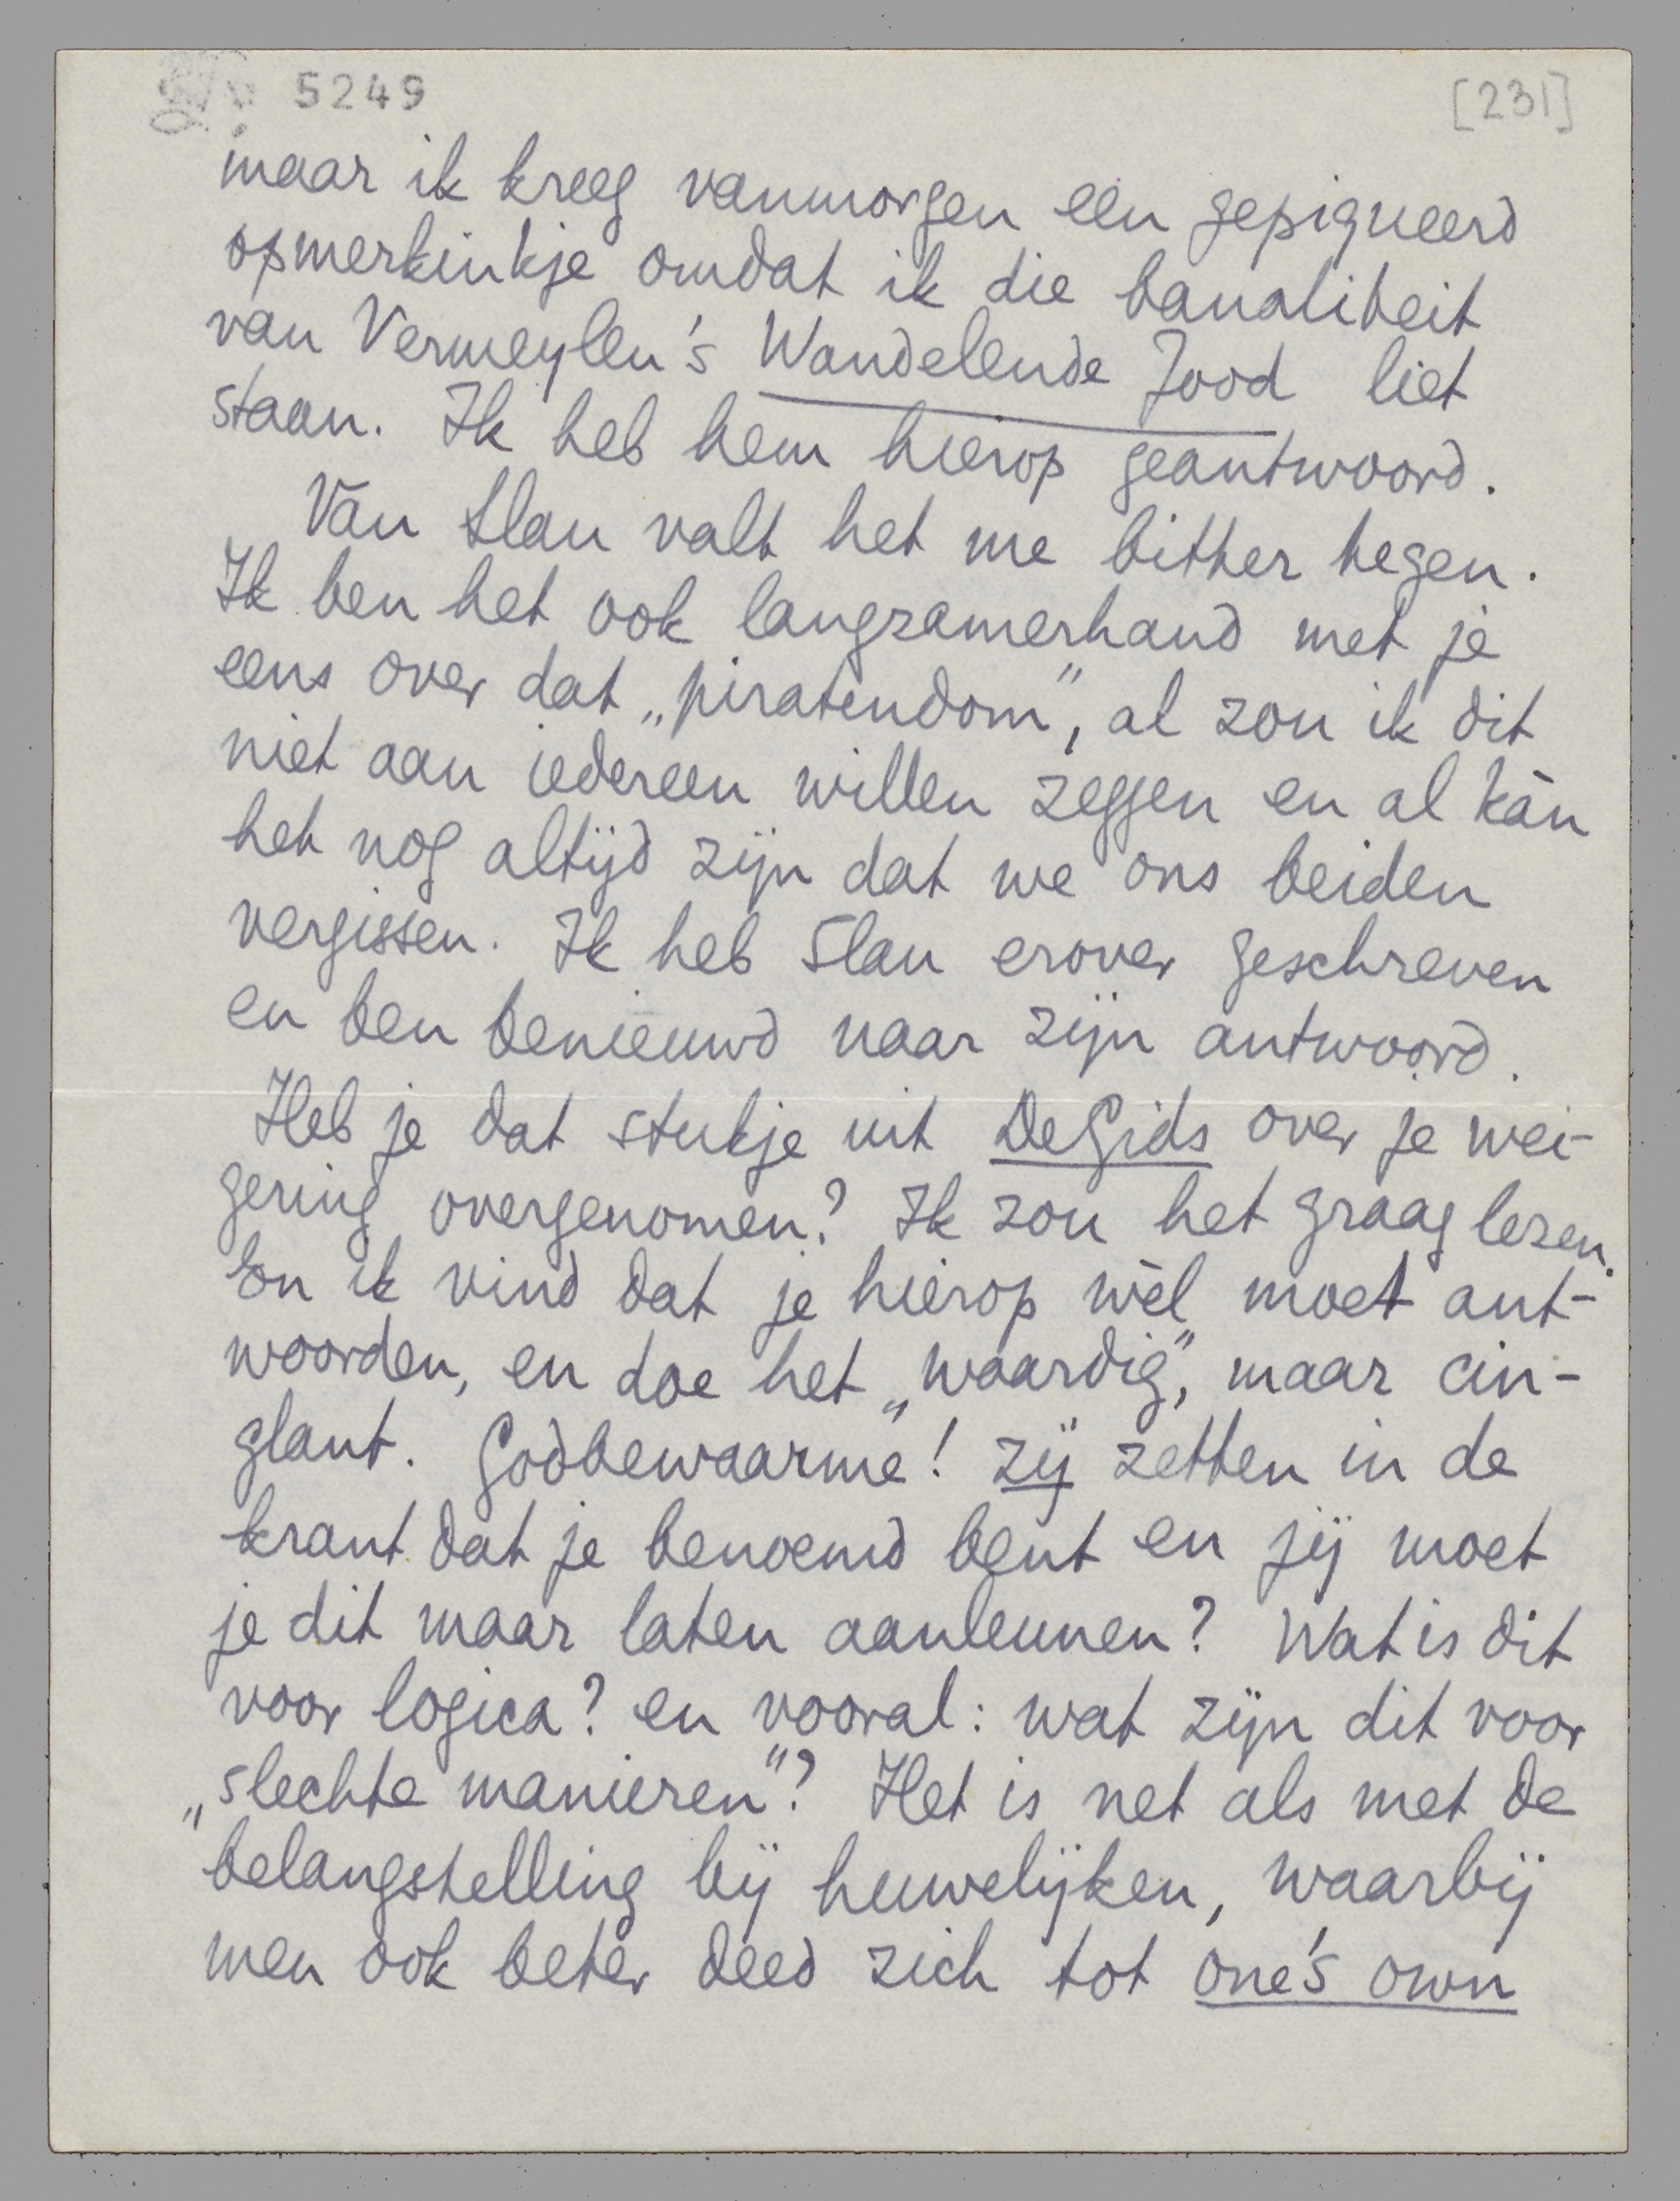 5249
[231]
maar ik kreeg vanmorgen een gepiqueerd
opmerkinkje omdat ik die banaliteit
van Vermeylen's Wandelende Jood liet
staan. Ik heb hem hierop geantwoord.
Van Slau valt het me bitter tegen.
Ik ben het ook langzamerhand met je
eens over dat „piratendom”, al zou ik dit
niet aan iedereen willen zeggen en al kàn
het nog altijd zijn dat we ons beiden
vergissen. Ik heb Slau erover geschreven
en ben benieuwd naar zijn antwoord.
Heb je dat stukje uit De Gids over je wei-
gering overgenomen? Ik zou het graag lezen.
En ik vind dat je hierop wèl moet ant-
woorden, en doe het „waardig”, maar cin-
glant. Godbewaarme! zij zetten in de
krant dat je benoemd bent en jij moet
je dit maar laten aanleunen? Wat is dit
voor logica? en vooral: wat zijn dit voor
„slechte manieren”? Het is net als met de
belangstelling bij huwelijken, waarbij
men ook beter deed zich tot one's own